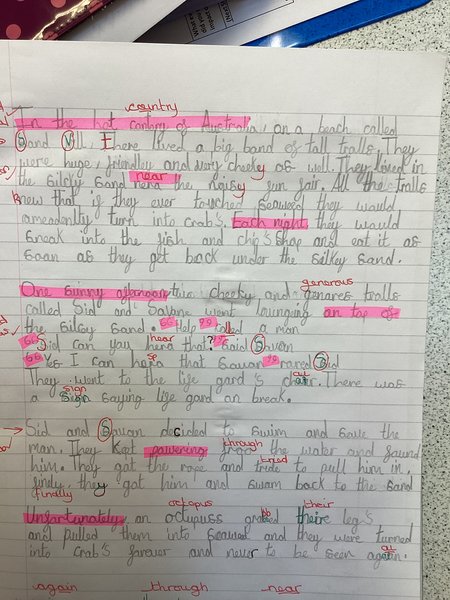 country
In the hot contory of Australia, on a beach called
Sand Vill, There lived a big band of tall trolls. They
were huge, friendley and very cheeky as well. They lived in
near
the silcky sand nera the noisy fun fair. All the trolls
knew that if they ever touched seaweed they would
ameadently turn into crab's. Each night they would
sneak into the fish and chip's shop and eat it as
soon as they get back under the silkey sand.
generous
One sunny afternoon two cheeky and genares trolls
called Sid and Savane went lounging on top of
the silkey sand. "Help" called a man.
hear
"Sid can you hera that?" said Savan
sp
"Yes I can hera that Sawan" rared Sid
They went to the life gard's chair. There was
sign
a Sign saying life gard on break.
Sid and Savan decided to swim and save the
through
man. They kept powering froo the water and faund
tried
him. They got the rope and tride to pull him in,
findly, they got him and swam back to the sand
finally
octopus their
Unfortunately, an octupuss grabbed their leg's
and pulled them into seaweed and they were turned
into crab's forever and never to be seen again.
again through near